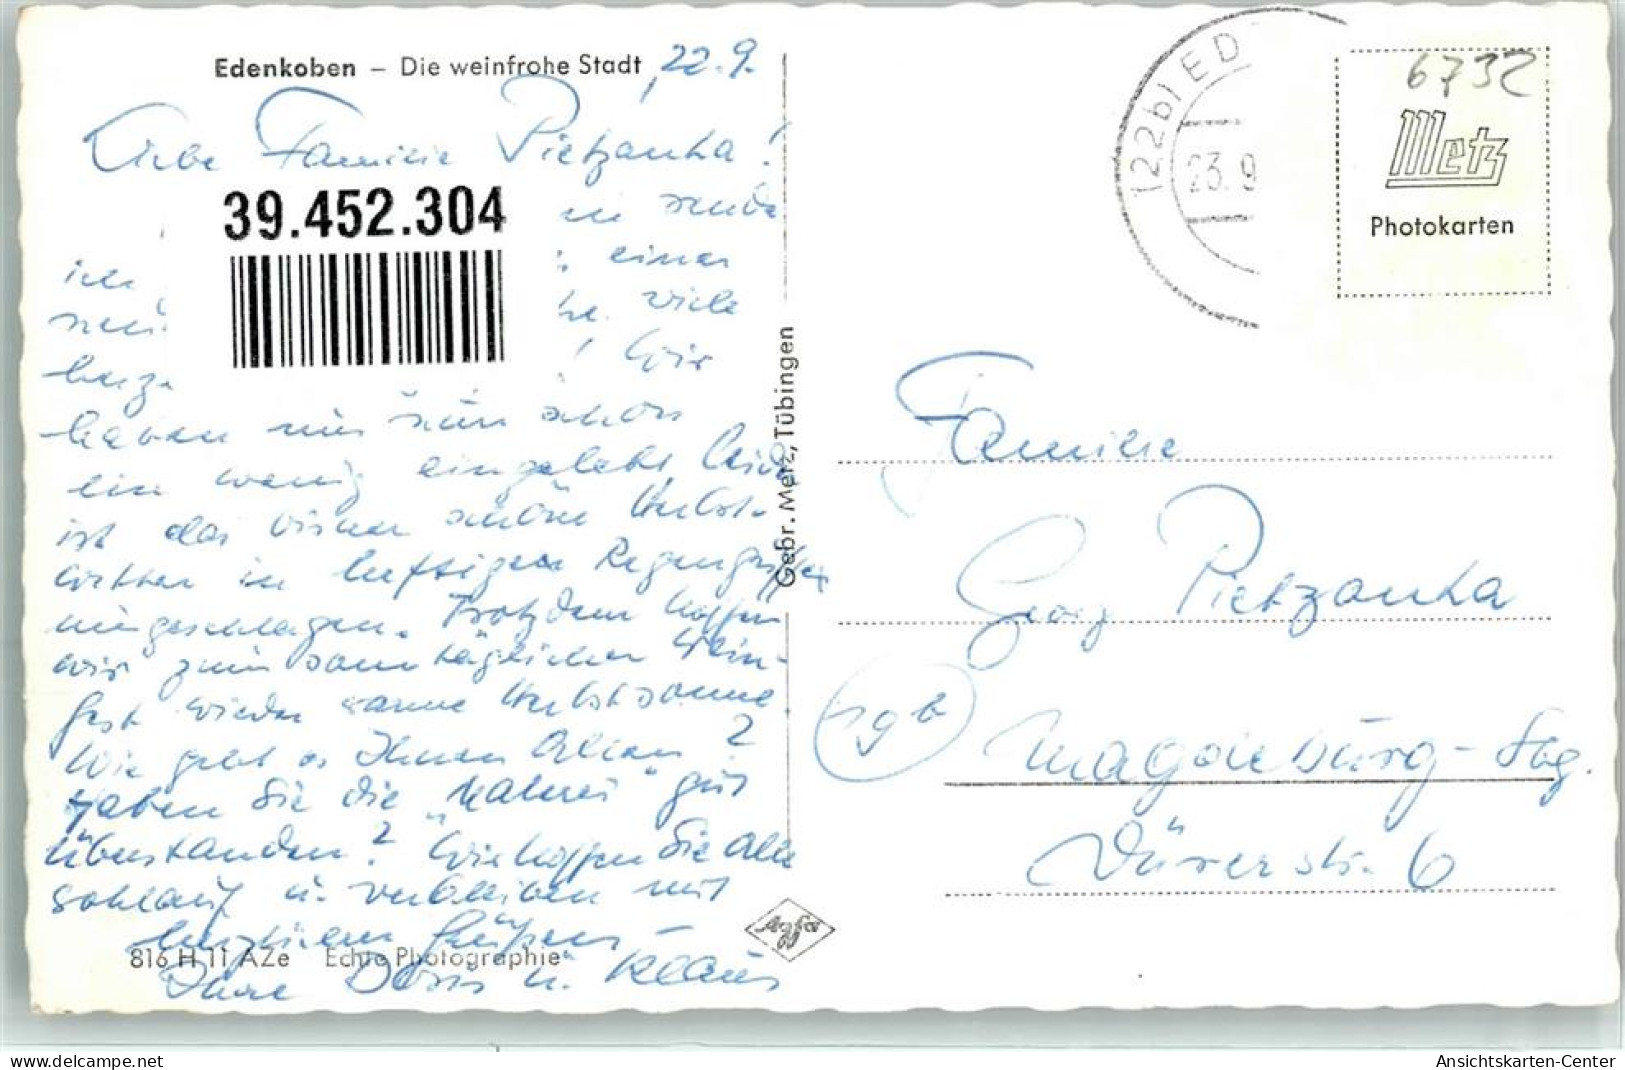 Edenkoben – Die weinfrohe Stadt 22.9.
Liebe Familie Pietzonka!
39.452.304
sende
einer
viele
Wir
haben uns nun schon
ein wenig eingelebt, leider
ist das bisher schöne Herbst-
wetter in heftigen Regengüssen
umgeschlagen. Trotzdem hoffen
wir zum sonntäglichen Wein-
fest wieder warme Herbstsonne
Wie geht es Ihnen Allen?
Haben Sie die
gut
überstanden? Wir hoffen Sie alle
wohlauf u. verbleiben mit
herzlichen Grüßen –
816 H 11 AZe Echte Photographie
Ihre Doris u. Klaus
Gebr. Metz, Tübingen
Agfa
(22b) ED
23. 9
6732
Metz
Photokarten
Familie
Georg Pietzonka
19b
Magdeburg-Sbg.
Dürerstr. 6
www.delcampe.net
Ansichtskarten-Center